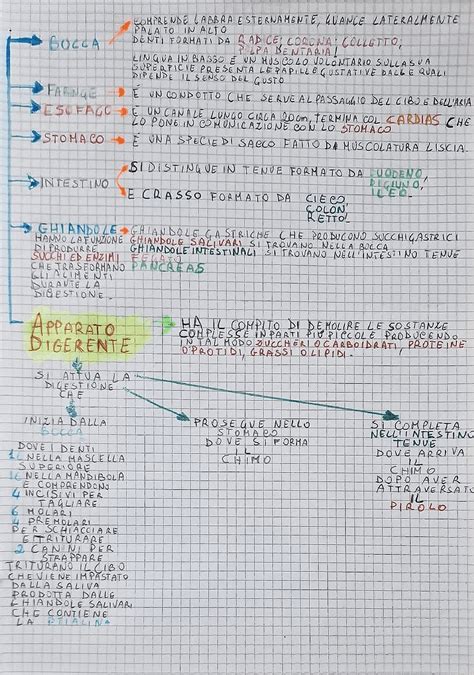 COMPRENDE LABBRA ESTERNAMENTE, GUANCE LATERALMENTE
PALATO IN ALTO
BOCCA
DENTI FORMATI DA RADICE; CORONA; COLLETTO,
POLPA DENTARIA!
LINGUA IN BASSO E UN MUSCOLO VOLONTARIO SULLA SUA
SUPERFICIE PRESENTA LE PAPILLE GUSTATIVE DALLE QUALI
DIPENDE IL SENSO DEL GUSTO
FARNGE
È UN CONDOTTO CHE SERVE AL PASSAGGIO DEL CIBO E DELL'ARIA
ESOFAGO
È UN CANALE LUNGO CIRCA 20cm, TERMINA COL CARDIAS CHE
LO PONE IN COMUNICAZIONE CON LO STOMACO
STOMACO
È UNA SPECIE DI SACCO FATTO DA MUSCOLATURA LISCIA.
INTESTINO
SI DISTINGUE IN TENUE FORMATO DA DUODENO,
DIGIUNO,
ILEO.
E CRASSO FORMATO DA CIECO,
COLON,
RETTO.
GHIANDOLE
GHIANDOLE GASTRICHE CHE PRODUCONO SUCCHI GASTRICI
HANNO LA FUNZIONE GHIANDOLE SALIVARI SI TROVANO NELLA BOCCA
DI PRODURRE GHIANDOLE INTESTINALI SI TROVANO NELL'INTESTINO TENUE
SUCCHI ED ENZIMI FEGATO
CHE TRASFORMANO PANCREAS
GLI ALIMENTI
DURANTE LA
DIGESTIONE.
APPARATO
DIGERENTE
HA IL COMPITO DI DEMOLIRE LE SOSTANZE
COMPLESSE IN PARTI PIÙ PICCOLE PRODUCENDO
IN TAL MODO ZUCCHERI O CARBOIDRATI, PROTEINE
O PROTIDI, GRASSI O LIPIDI.
SI ATTIVA LA
DIGESTIONE
CHE
INIZIA DALLA
BOCCA
DOVE I DENTI
NELLA MASCELLA
SUPERIORE
NELLA MANDIBOLA
E COMPRENDONO
4 INCISIVI PER
TAGLIARE
6 MOLARI
4 PREMOLARI
PER SCHIACCIARE
E TRITURARE
2 CANINI PER
STRAPPARE
TRITURANO IL CIBO
CHE VIENE IMPASTATO
DALLA SALIVA
PRODOTTA DALLE
GHIANDOLE SALIVARI
CHE CONTIENE
LA PTIALINA
PROSEGUE NELLO
STOMACO
DOVE SI FORMA
IL
CHIMO
SI COMPLETA
NELL'INTESTINO
TENUE
DOVE ARRIVA
IL
CHIMO
DOPO AVER
ATTRAVERSATO
IL
PIROLO